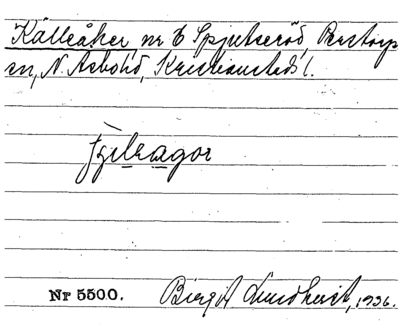 Källeåker nr 6 Spjutseröd, Perstorp
sn, N. Åsbo hd, Kristianstads l.
Nr 5500. Birgit Lundqvist, 1936.